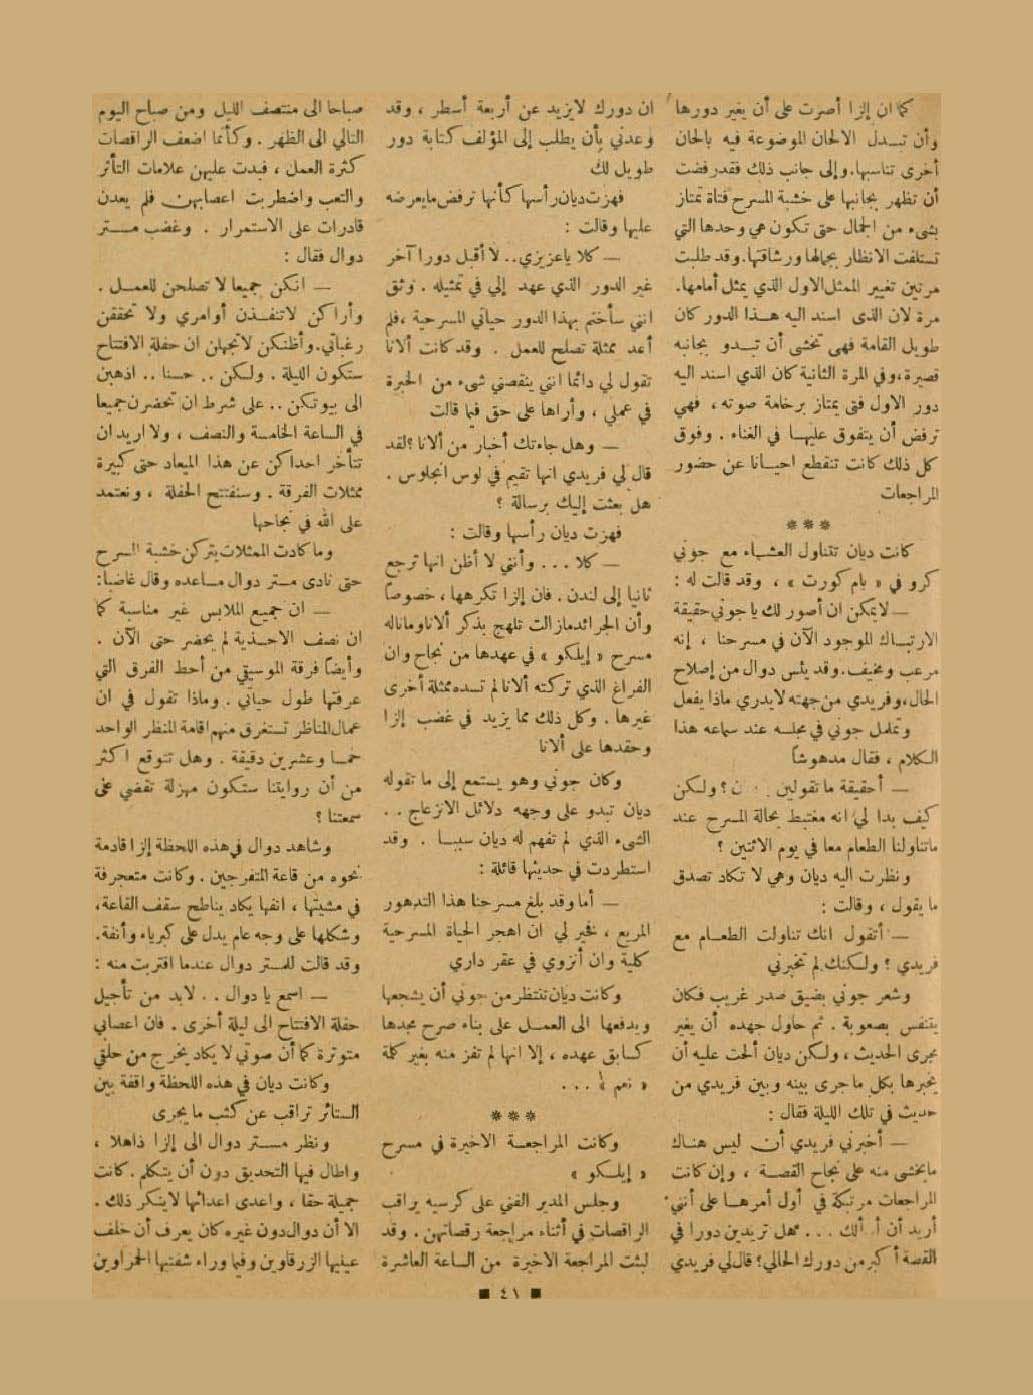 كما ان إلزا أصرت على أن يغير دورها
وأن تبـدل الالحان الموضوعة فيه بالحان
أخرى تناسبها. وإلى جانب ذلك فقد رفضت
أن تظهر بجانبها على خشبة المسرح فتاة تمتاز
بشىء من الجمال حتى تكون هي وحدها التي
تستلفت الانظار بجمالها ورشاقتها. وقد طلبت
مرتين تغيير الممثل الاول الذي يمثل أمامها.
مرة لان الذى اسند اليه هـذا الدور كان
طويل القامة فهى تخشى أن تبـدو بجانبه
قصيرة، وفي المرة الثانية كان الذي اسند اليه
دور الاول فتى يمتاز برخامة صوته ، فهي
ترفض أن يتفوق عليهـا في الغناء . وفوق
كل ذلك كانت تنقطع احيـانا عن حضور
المراجعات
***
كانت ديان تتناول العشـاء مع جوني
كرو في « بام كورت » ، وقد قالت له :
— لا يمكن ان أصور لك يا جوني حقيقة
الارتبـاك الموجود الآن في مسرحنا ، إنه
مرعب ومخيف. وقد يئس دوال من إصلاح
الحال، وفريدي من جهته لا يدري ماذا يفعل
وتململ جوني في مجلسه عند سماعه هذا
الكلام ، فقال مدهوشاً
— أحقيقة ما تقولين ؟ ولـكن
كيف بدا لي انه مغتبط بحالة المسرح عند
ماتناولنا الطعام معا في يوم الاثنين ؟
ونظرت اليه ديان وهي لا تكاد تصدق
ما يقول ، وقالت :
— أتقول انك تناولت الطعـام مع
فريدي ؟ ولـكنك لم تخبرني
وشعر جوني بضيق صدر غريب فكان
يتنفس بصعوبة . ثم حاول جهده أن يغير
مجرى الحديث ، ولـكن ديان ألحت عليه أن
يخبرها بكل ما جرى بينه وبين فريدي من
حديث في تلك الليلة فقال :
— أخبرني فريدي أن ليس هنـاك
مايخشى منه على نجاح القصة ، وإن كانت
المراجعات مرتبكة في أول أمرهـا على أنني
أريد أن أسألك ... هل تريدين دورا في
القصة أكبر من دورك الحالي؟ قال لي فريدي
ان دورك لايزيد عن أربعة أسطر ، وقد
وعدني بأن يطلب إلى المؤلف كتابة دور
طويل لك
فهزت ديان رأسها كأنها ترفض مايعرضه
عليها وقالت :
— كلا ياعزيزي.. لا أقبل دورا آخر
غير الدور الذي عهد إلي في تمثيله . وثق
انني سأختم بهذا الدور حياتي المسرحية ، فلم
أعد ممثلة تصلح للعمل . وقد كانت ألانا
تقول لي دائما انني ينقصني شىء من الخبرة
في عملي ، وأراها على حق فيما قالت
— وهل جاءتك أخبار من ألانا ؟ لقد
قال لي فريدي انها تقيم في لوس انجلوس .
هل بعثت إليك برسالة ؟
فهزت ديان رأسها وقالت :
— كلا ... وأنني لا أظن انها ترجع
ثانيا إلى لندن . فان إلزا تكرهها ، خصوصاً
وأن الجرائد مازالت تلهج بذكر ألانا وماناله
مسرح « إيلكو » في عهدها من نجاح وان
الفراغ الذي تركته ألانا لم تسده ممثلة أخرى
غيرها . وكل ذلك مما يزيد في غضب إلزا
وحقدها على ألانا
وكان جوني وهو يستمع إلى ما تقوله
ديان تبدو على وجهه دلائل الانزعاج . .
الشىء الذي لم تفهم له ديان سببـا . وقد
استطردت في حديثها قائلة :
— أما وقد بلغ مسرحنا هذا التدهور
المريع ، فخير لي ان اهجر الحياة المسرحية
كلية وان أنزوي في عقر داري
وكانت ديان تنتظر من جوني أن يشجعها
ويدفعها الى العمـل على بناء صرح مجدها
كـابق عهده ، إلا انها لم تفز منه بغير كلمة
« نعم » ...
***
وكانت المراجعـة الاخيرة في مسرح
« إيلـكو »
وجلس المدير الفني على كرسيه يراقب
الراقصات في أثناء مراجعة رقصاتهن . وقد
لبثت المراجعة الاخيرة من الساعة العاشرة
صباحا الى منتصف الليل ومن صباح اليوم
التالي الى الظهر . وكأنما اضعف الراقصات
كثرة العمل ، فبدت عليهن علامات التأثر
والتعب واضطربت اعصابهن فلم يعدن
قادرات على الاستمرار . وغضب مـتر
دوال فقال :
— انكن جميعا لا تصلحن للعمـل .
وأراكن لاتنفـذن أوامري ولا تحققن
رغباتي. وأظنكن لا تجهلن ان حفلة الافتتاح
ستكون الليلة . ولـكن .. حسنا .. اذهبن
الى بيوتكن .. على شرط ان تحضرن جميعا
في الساعة الخامسة والنصف ، ولا اريد ان
تتأخر احداكن عن هذا الميعاد حتى كبيرة
ممثلات الفرقة . وسنفتتح الحفلة ، ونعتمد
على الله في نجاحها
وما كادت الممثلات يتركن خشبة المسرح
حتى نادى مستر دوال مساعده وقال غاضبا:
— ان جميع الملابس غير مناسبة كما
ان نصف الاحذية لم يحضر حتى الآن .
وأيضا فرقة الموسيقى من أحط الفرق التي
عرفتها طول حياتي . وماذا تقول في ان
عمال المناظر تستغرق منهم اقامة المنظر الواحد
خمسـا وعشرين دقيقة . وهل تتوقع اكثر
من أن روايتنا ستكون مهزلة تقضي على
سمعتنا ؟
وشاهد دوال في هذه اللحظة إلزا قادمة
نحوه من قاعة المتفرجين . وكانت متعجرفة
في مشيتها ، انفها يكاد يناطح سقف القاعة،
وشكلها على وجه عام يدل على كبرياء وأنفة.
وقد قالت لمستر دوال عندما اقتربت منه :
— اسمع يا دوال . . لابد من تأجيل
حفلة الافتتاح الى ليلة أخرى . فان اعصابي
متوترة كما أن صوتي لا يكاد يخرج من حلقي
وكانت ديان في هذه اللحظة واقفة بين
الستائر تراقب عن كثب ما يجرى
ونظر مستر دوال الى إلزا ذاهلا ،
واطال فيها التحديق دون أن يتكلم. كانت
جميلة حقا ، واعدى اعدائها لا ينكر ذلك .
الا أن دوال دون غيره كان يعرف أن خلف
عينيها الزرقاوين وفيما وراء شفتيها الحمراوين
■ ٤١ ■